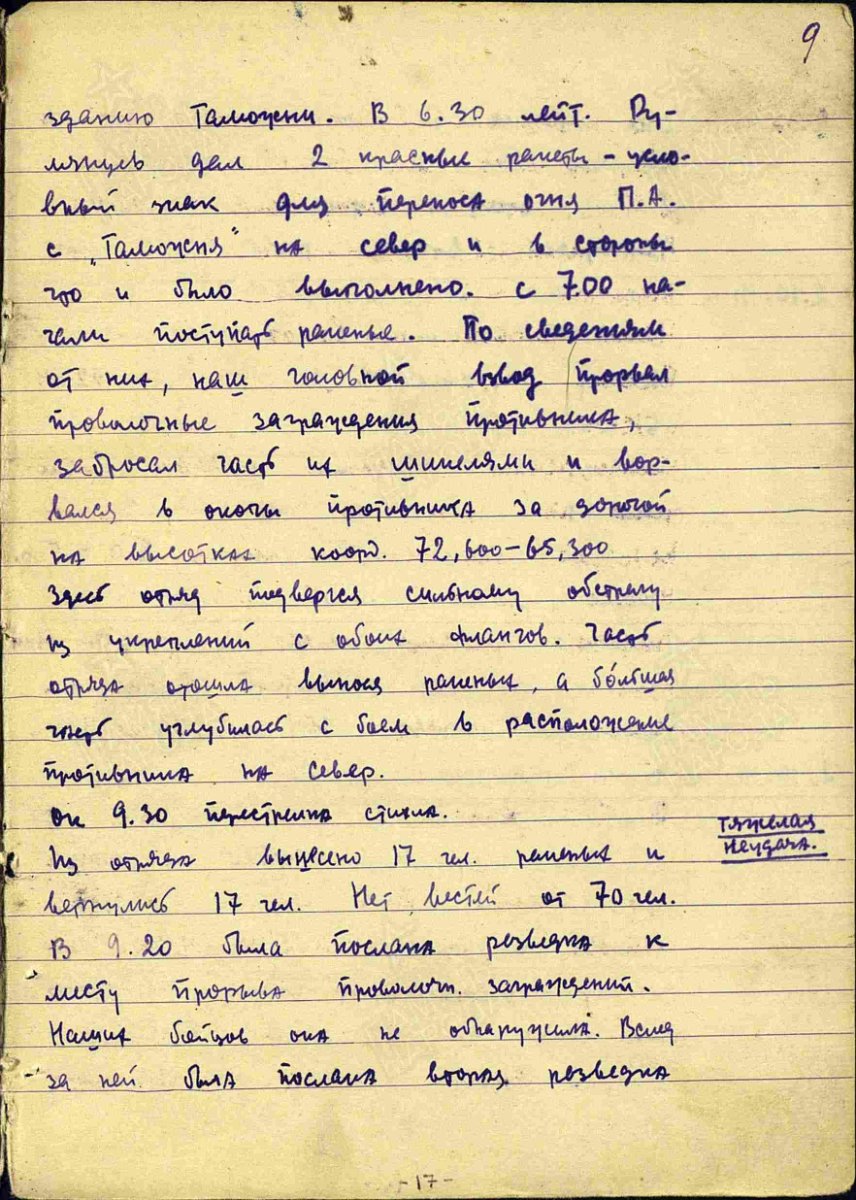 9
зданию Таможни. В 6.30 лейт. Ру-
мянцев дал 2 красные ракеты – усло-
вный знак для переноса огня П.А.
с „Таможня" на север и в стороны
что и было выполнено. с 7.00 на-
чали поступать раненые. По сведениям
от них, наш головной взвод прорвал
проволочные заграждения противника,
забросал часть их шинелями и вор-
вался в окопы противника за дорогой
на высотках коорд. 72,600–65,300
Здесь отряд подвергся сильному обстрелу
из укреплений с обоих флангов. Часть
отряда отошла вынося раненых, а бо́льшая
часть углубилась с боем в расположение
противника на север.
ок 9.30 перестрелка стихла.
Тяжелая
неудача.
Из отряда вынесено 17 чел. раненых и
вернулись 17 чел. Нет вестей от 70 чел.
В 9.20 была послана разведка к
месту прорыва проволочн. заграждений.
Наших бойцов она не обнаружила. Вслед
за ней была послана вторая разведка
-17-